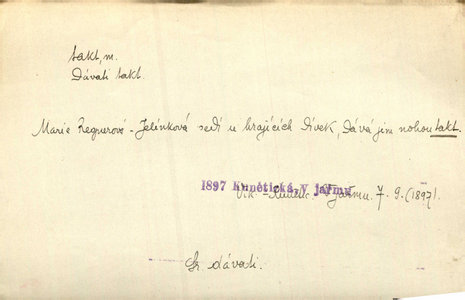 takt, m.
Dávati takt.
Marie Regnerové-Jelínková sedí u hrajících dívek, dává jim nohou takt.
1897 Kunětická, V jařmu
Vik. 7. 9. (1897).
dávati.